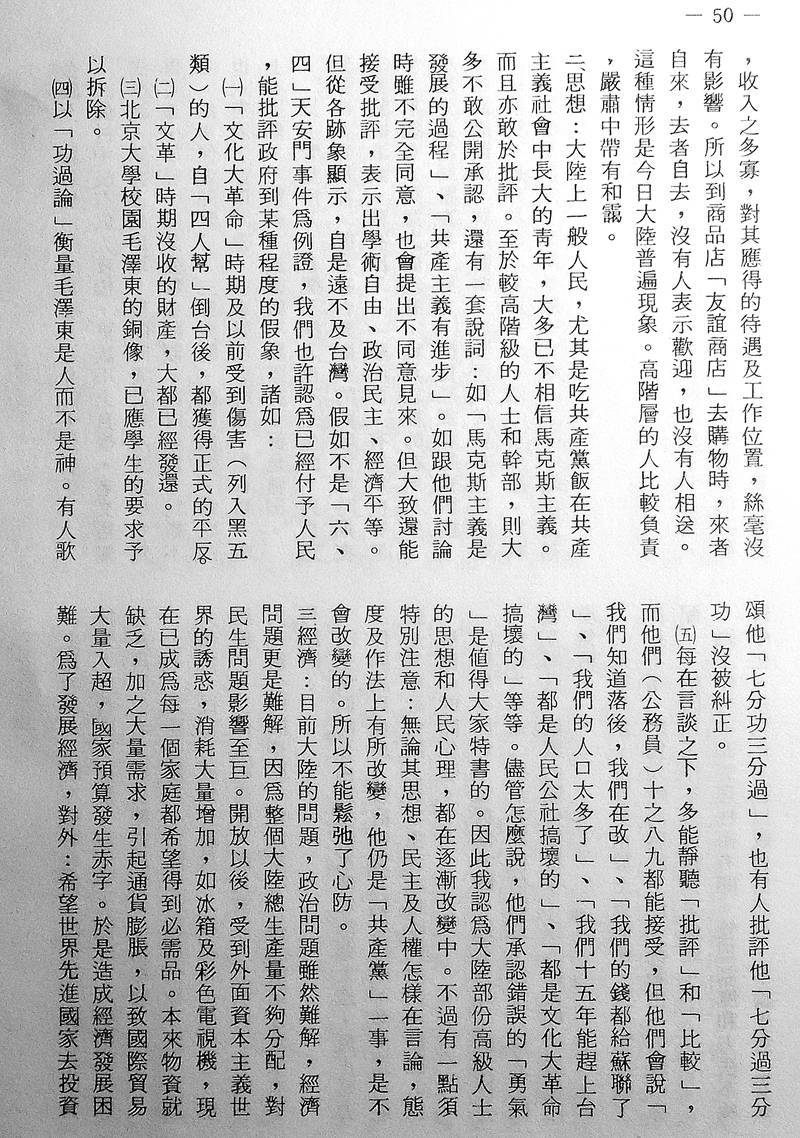 — 50 —
，收入之多寡，對其應得的待遇及工作位置，絲毫沒
有影響。所以到商品店「友誼商店」去購物時，來者
自來，去者自去，沒有人表示歡迎，也沒有人相送。
這種情形是今日大陸普遍現象。高階層的人比較負責
，嚴肅中帶有和靄。
二、思想：大陸上一般人民，尤其是吃共產黨飯在共產
主義社會中長大的青年，大多已不相信馬克斯主義。
而且亦敢於批評。至於較高階級的人士和幹部，則大
多不敢公開承認，還有一套說詞：如「馬克斯主義是
發展的過程」、「共產主義有進步」。如跟他們討論
時雖不完全同意，也會提出不同意見來。但大致還能
接受批評，表示出學術自由、政治民主、經濟平等。
但從各跡象顯示，自是遠不及台灣。假如不是「六、
四」天安門事件爲例證，我們也許認爲已經付予人民
，能批評政府到某種程度的假象，諸如：
㈠「文化大革命」時期及以前受到傷害（列入黑五
類）的人，自「四人幫」倒台後，都獲得正式的平反。
㈡「文革」時期沒收的財產，大都已經發還。
㈢北京大學校園毛澤東的銅像，已應學生的要求予
以拆除。
㈣以「功過論」衡量毛澤東是人而不是神。有人歌
頌他「七分功三分過」，也有人批評他「七分過三分
功」沒被糾正。
㈤每在言談之下，多能靜聽「批評」和「比較」，
而他們（公務員）十之八九都能接受，但他們會說「
我們知道落後，我們在改」、「我們的錢都給蘇聯了
」、「我們的人口太多了」、「我們十五年能趕上台
灣」、「都是人民公社搞壞的」、「都是文化大革命
搞壞的」等等。儘管怎麼說，他們承認錯誤的「勇氣
」是值得大家特書的。因此我認爲大陸部份高級人士
的思想和人民心理，都在逐漸改變中。不過有一點須
特別注意：無論其思想、民主及人權怎樣在言論，態
度及作法上有所改變，他仍是「共產黨」一事，是不
會改變的。所以不能鬆弛了心防。
三經濟：目前大陸的問題，政治問題雖然難解，經濟
問題更是難解，因爲整個大陸總生產量不夠分配，對
民生問題影響至巨。開放以後，受到外面資本主義世
界的誘惑，消耗大量增加，如冰箱及彩色電視機，現
在已成爲每一個家庭都希望得到必需品。本來物資就
缺乏，加之大量需求，引起通貨膨脹，以致國際貿易
大量入超，國家預算發生赤字。於是造成經濟發展困
難。爲了發展經濟，對外：希望世界先進國家去投資